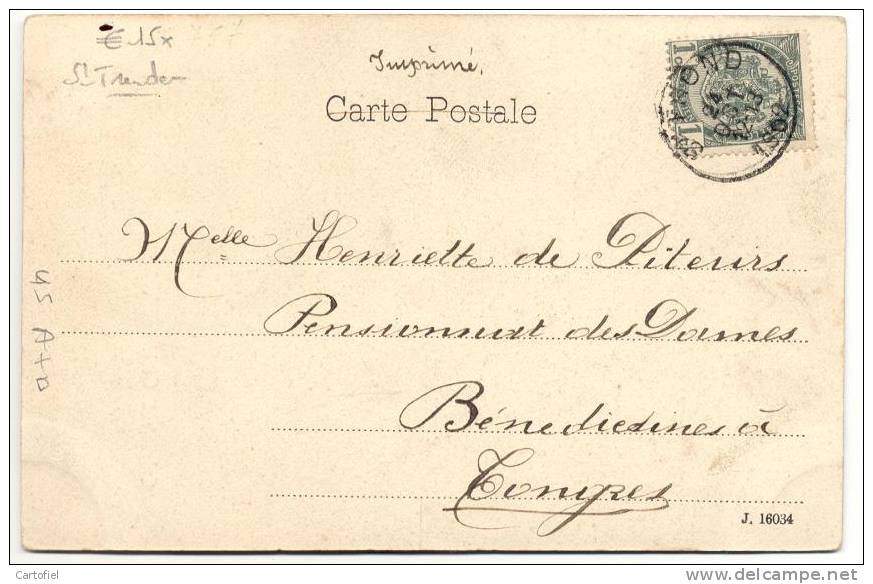 € 15x
St Truiden
Imprimé,
Carte Postale
1
1
ST TROND
24
OCT
12-13
1902
Melle Henriette de Piteurs
Pensionnat des Dames
Bénédictines à
Tongres
J. 16034
Cartofiel
delcampe.net